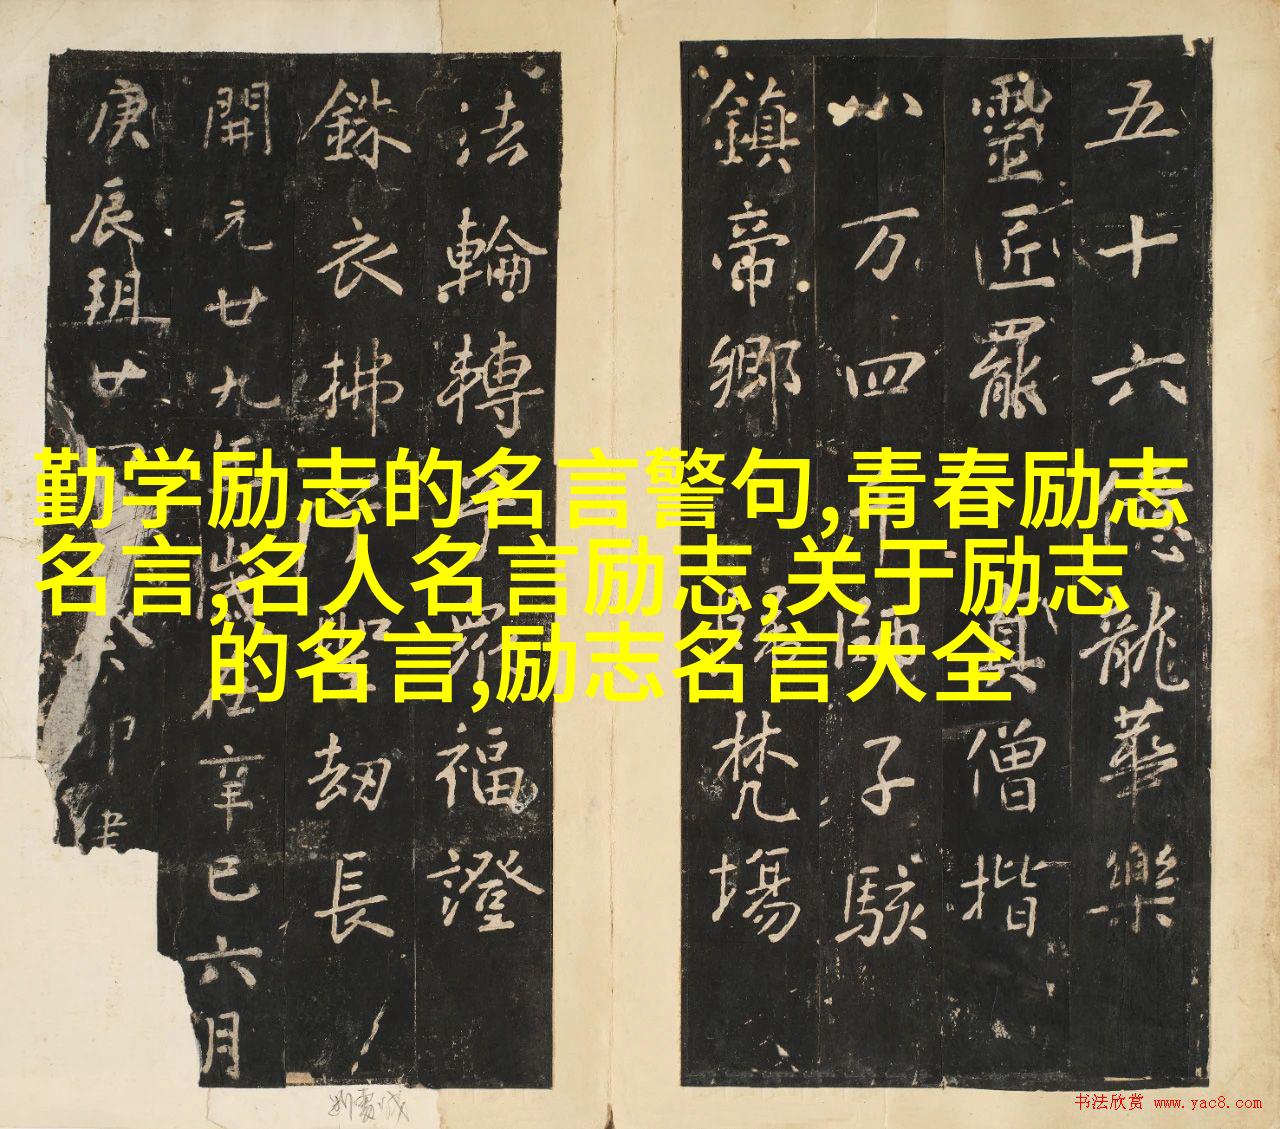 勤学励志的名言警句,青春励志
名言,名人名言励志,关于励志
的名言,励志名言大全
五十六億龍華樂
靈匠罷 真僧揩
八万四千師子駭
鎮帝鄉 梵場
法輪轉 福證
銖衣拂 石劫長
開元廿九年 歲在辛巳六月
庚辰朔廿 癸卯建
书法欣赏 www.yac8.com